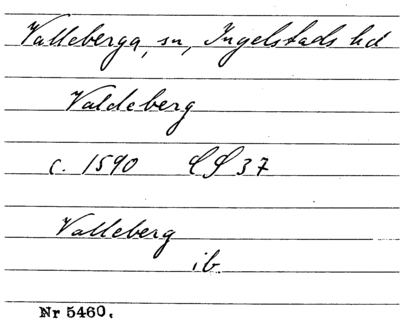 Valleberga, sn, Ingelstads hd
Valdeberg
c. 1590 LS 37
Valleberg
ib.
Nr 5460.